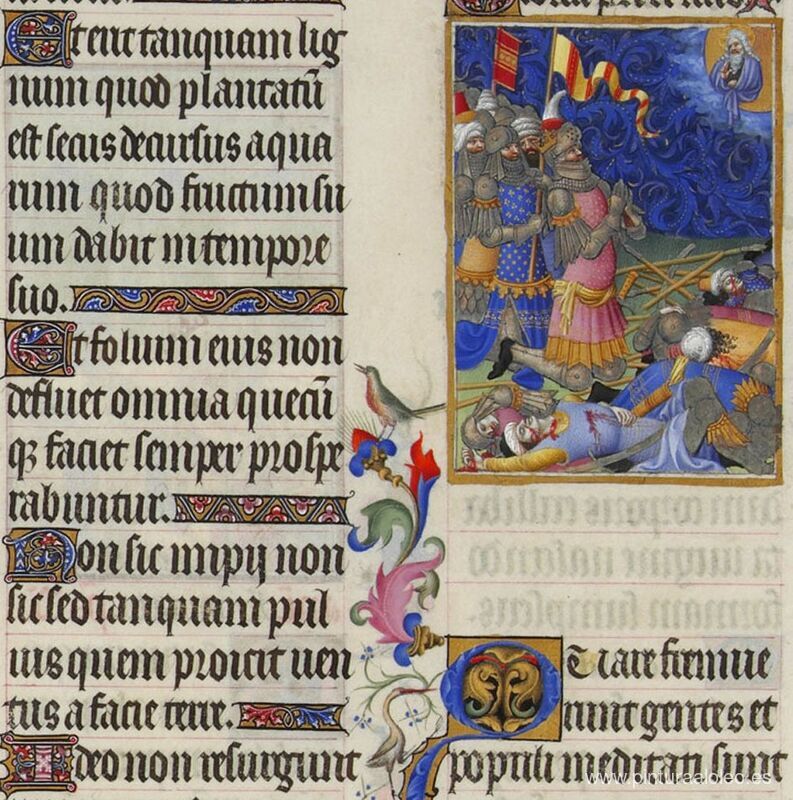 Et erit tanquam lig
num quod plantatū
est secus decursus aqua
rum quod fructum su
um dabit in tempore
suo.
Et folium eius non
defluet omnia quecū
qꝫ faciet semper prospe
rabuntur.
Non sic impij non
sic sed tanquam pul
uis quem proicit uen
tus a facie terre.
Ideo non resurgunt
Quare fremue
runt gentes et
populi meditati sunt
www.pinturaaloleo.es